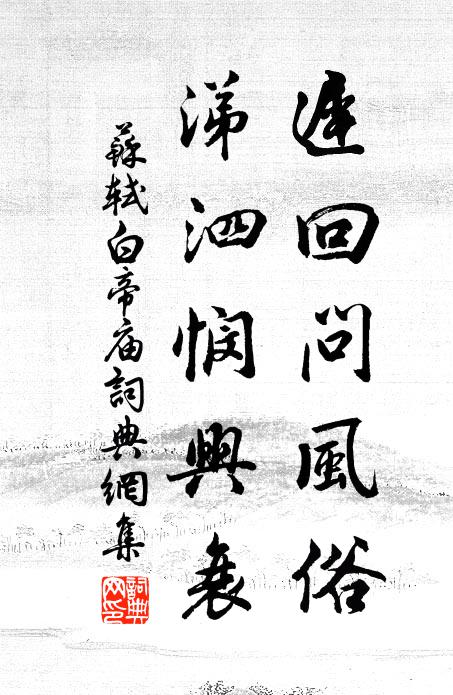 遲回問風俗
涕泗憫興衰
蘇軾白帝庙詞典網集
詞典网印